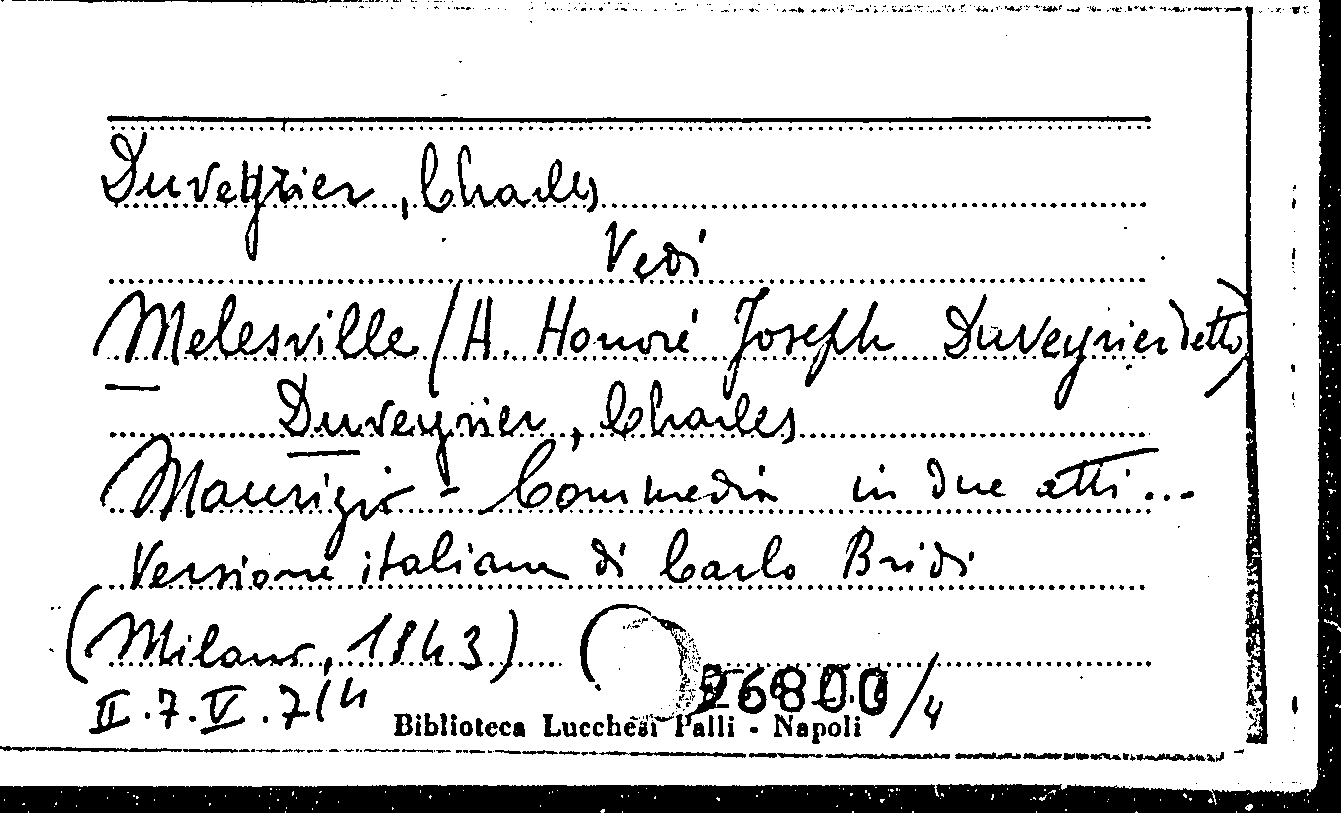 Duveyrier, Charles
Vedi
Melesville (A. Honoré Joseph Duveyrier detto)
Duveyrier, Charles
Maurizio - Commedia in due atti...
Versione italiana di Carlo Bridi
(Milano, 1843) (
II.7.V.7(4 26800/4
Biblioteca Lucchesi Palli - Napoli